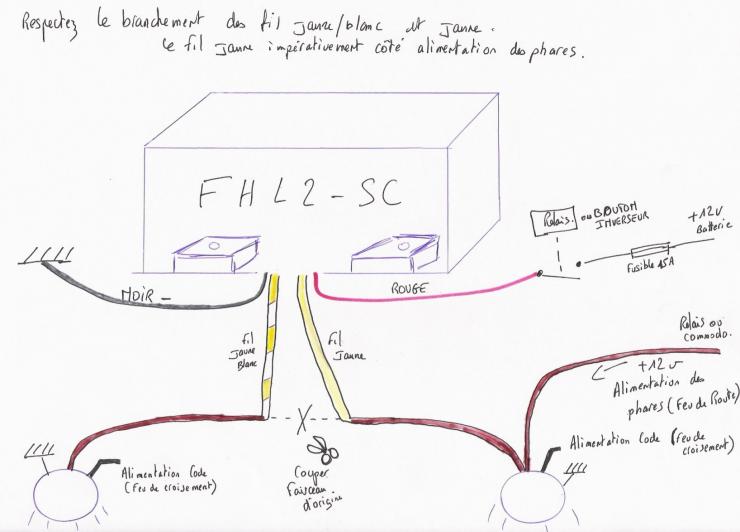 Respectez le branchement des fil jaune/blanc et jaune.
le fil jaune impérativement côté alimentation des phares.
FHL2-SC
Relais. ou BOUTON
INVERSEUR
+12V
Batterie
Fusible 15A
NOIR -
ROUGE
fil
Jaune
Blanc
fil
Jaune
Relais ou
commodo.
+12V
Alimentation des
phares (Feu de Route)
X
Couper
faisceau
d'origine
Alimentation Code
(Feu de croisement)
Alimentation Code (feu de
croisement)